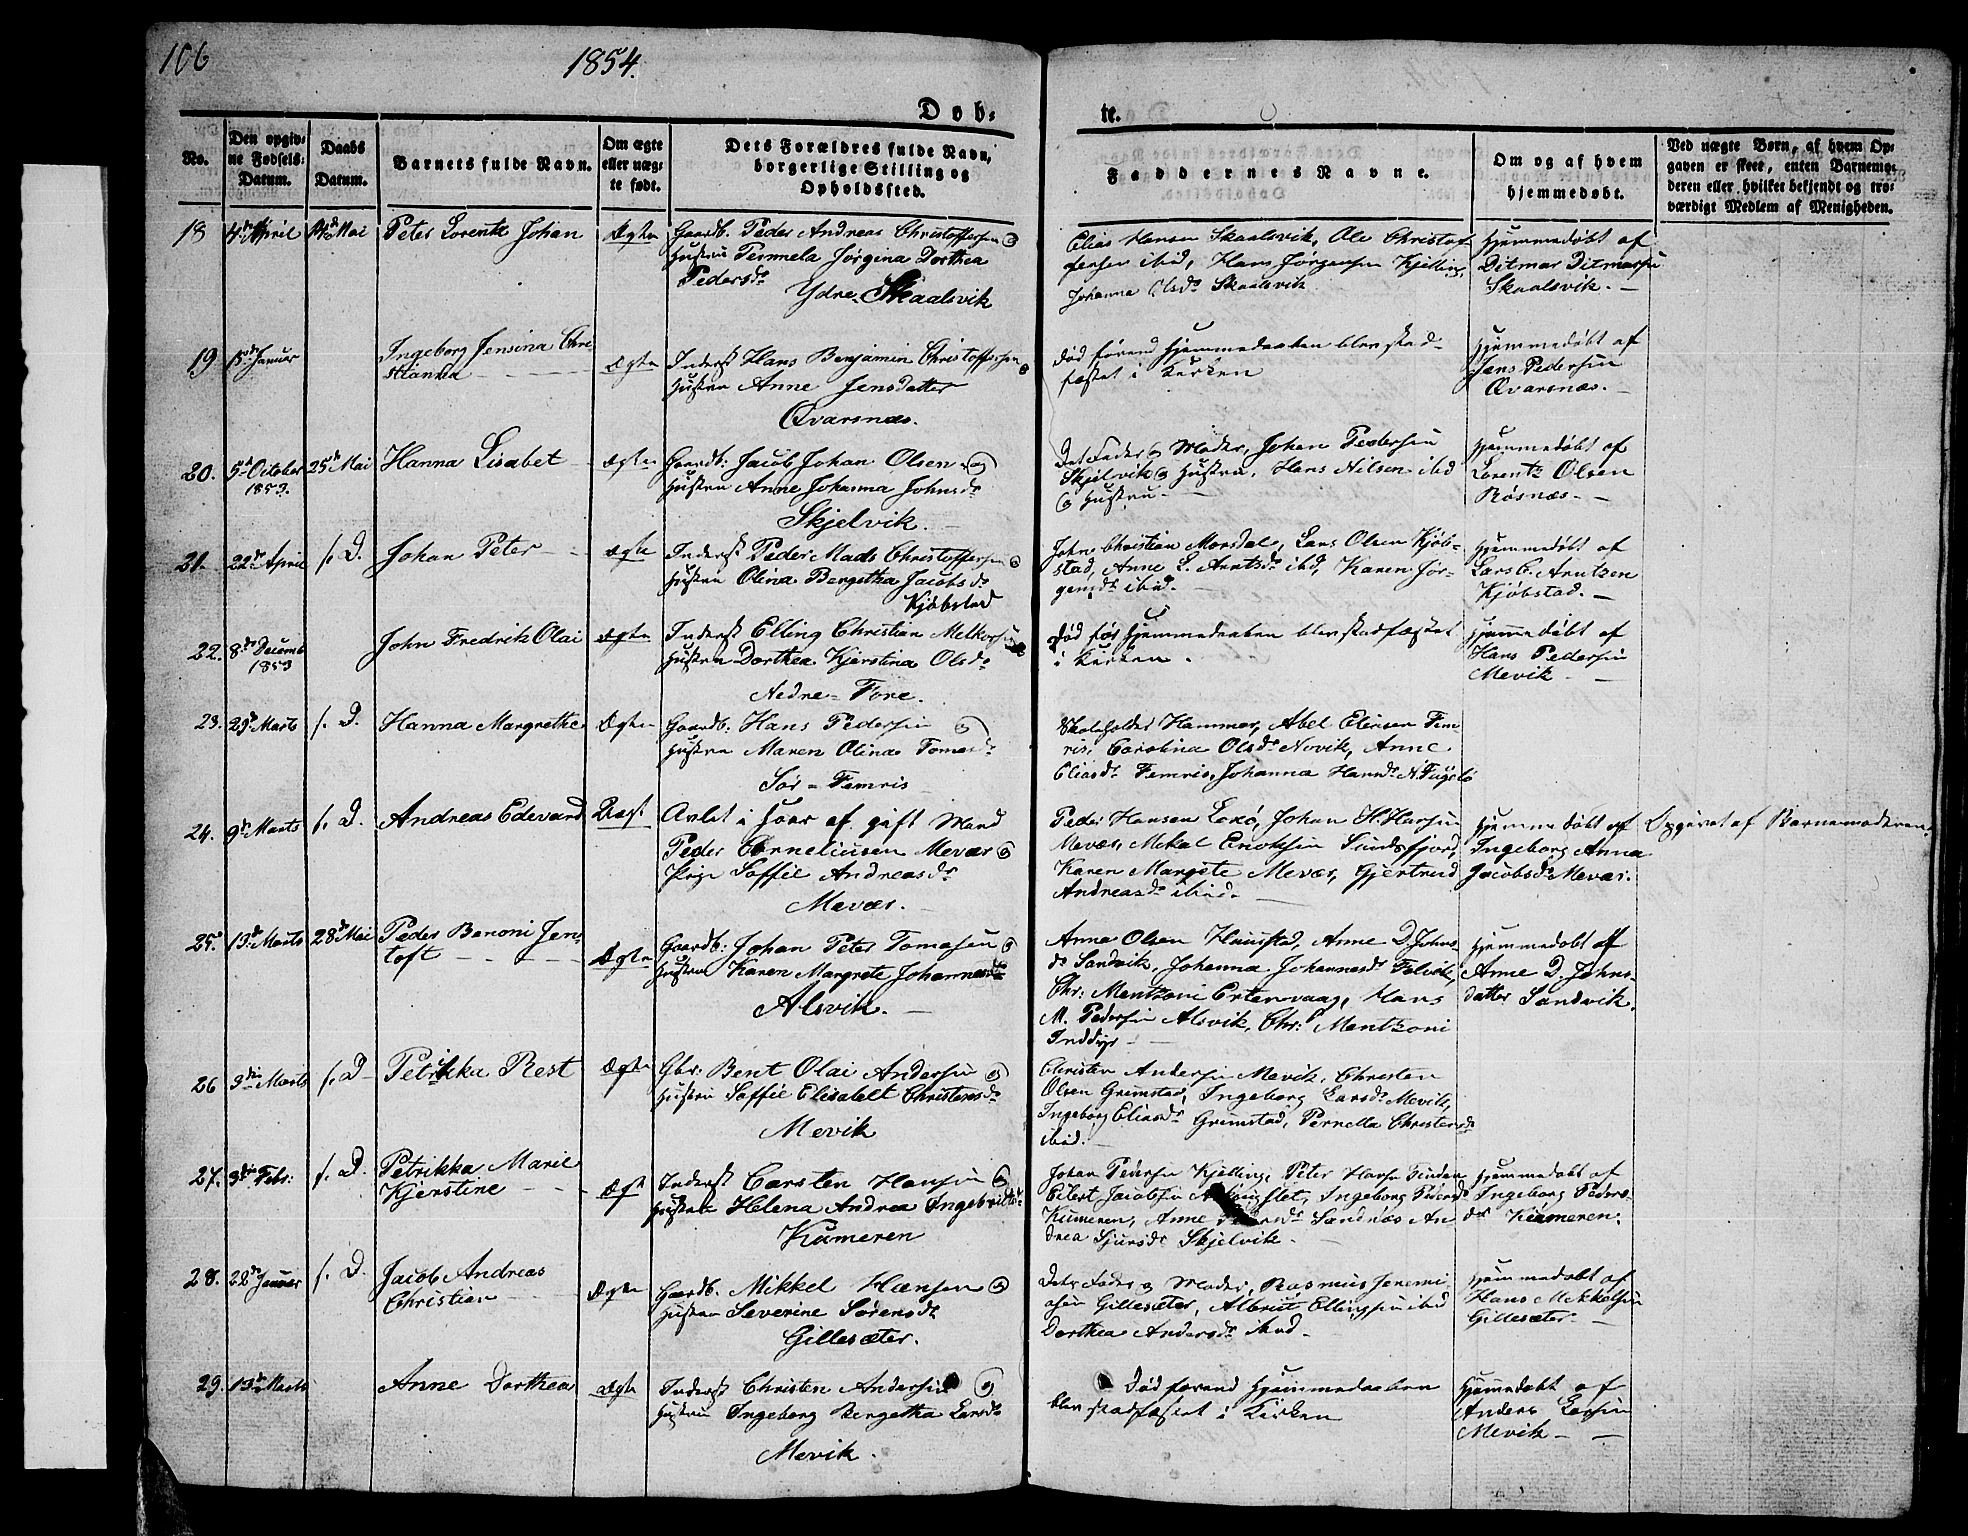 106
1854.
Døb-
te.
No.
Den opgiv-
ne Fødsels-
Datum.
Daabs
Datum.
Barnets fulde Navn.
Om ægte
eller uæg-
te født.
Dets Forældres fulde Navn,
borgerlige Stilling og
Opholdssted.
Faddernes Navne.
Om og af hvem
hjemmedøbt.
Ved uægte Børn, af hvem Op-
gaven er skeet, enten Barnemo-
deren eller hvilket bekjendt og tro-
værdigt Medlem af Menigheden.
18 4de April 14de Mai Peter Lorentz Johan Ægte
Gaardb. Peder Andreas Christoffersen og
Hustru Permela Jørgina Dorthea
Pedersdr
Ydre Skaalsvik
Elias Hansen Skaalsvik, Ole Christof
fersen ibid, Hans Jørgensen Kjelling,
Johanna Olsdr Skaalsvik
Hjemmedøbt af
Ditmar Ditmarsen
Skaalsvik. —
19 15de Januar
Ingeborg Jensina Chri-
stianna
Ægte
Inderst Hans Benjamin Christoffersen og
Hustru Anne Jensdatter
Qvarsnæs.
død førend Hjemmedaaben blev stad-
fæstet i Kirken
Hjemmedøbt af
Jens Pedersen
Qvarsnæs. —
20. 5te October 25de Mai Hanna Lisabet ægte
1853.
Gaardb: Jacob Johan Olsen og
Hustru Anne Johanna Johnsdr
Skjelvik.
Dets Fader og Moder, Johan Pedersen
Skjelvik og Hustru, Hans Nilsen ibid
og Hustru. —
Hjemmedøbt af
Lorentz Olsen
Røsnæs. —
21. 22de April s. D. Johan Peter ægte
Inderst Peder Mads Christoffersen og
Hustru Olina Bergetha Jacobsdr
Kjøbstad
John Christian Morsdal, Lars Olsen Kjøb-
stad, Anne L. Arntsdr ibid, Karen Jør-
gensdr ibid. —
Hjemmedøbt af
Lars C. Arntzen
Kjøbstad. —
22. 8de Decemb John Fredrik Olai ægte
1853
Inderst Elling Christian Melkersen og
Hustru Dorthea Kjerstina Olsdr
Nedre = Fore.
Død før Hjemmedaaben blev stadfæstet
i Kirken.
Hjemmedøbt af
Hans Pedersen
Mevik —
23. 29de Marts s. D. Hanna Margrethe Ægte
Gaardb: Hans Pedersen og
Hustru Maren Olina Tomasdr
Sør = Femris
Skoleholder Hammer, Abel Eliesen Fem-
ris, Carolina Olsdr Novik, Anne
Eliasdr Femris, Johanna Hansdr N. Fugelø
24. 9de Marts s. D. Andreas Edevard Uægt
Avlet i Hoer af gift Mand
Peder Corneliusen Mevær og
Pige Soffie Andreasdr
Mevær.
Peder Hansen, Johan H. Hansen
Mevær, Mikal Eriksen Sundsfjord,
Karen Margrete Mevær, Gjertrud
Andreasdr ibid. —
Hjemmedøbt af
Ingeborg Anna
Jacobsdr Mevær.
Opgivet af Barnemoderen.
25. 13de Marts 28de Mai Peder Benoni Jen-
toft
Ægte
Gaardb: Johan Peter Tomasen og
Hustru Karen Margrete Johannesdr
Alsvik. —
Anna Olsen Haustad, Anne D. Johns-
dr Sandvik, Johanna Johannesdr Falvik,
Chr: Mentzoni Ertenvaag, Hans
M. Pedersen Alsvik, Chr: P Mentzoni
Inddyr —
Hjemmedøbt af
Anne D. Johns-
datter Sandvik.
26 3die Marts s. D Petrikka Rest Ægte
Gbr: Bent Olai Andersen og
Hustru Soffie Elisabett Christensdr
Mevik
Christen Andersen Mevik, Christen
Olsen Grimstad, Ingeborg Larsdr Mevik,
Ingeborg Eliasdr Grimstad, Pernella Christensdr
ibid. —
27. 3die Febr: s. D. Petrikka Marie
Kjerstine
Ægt
Inderst Carsten Hansen og
Hustru Helena Andrea Ingebrigtsdr
Kumeren
Johan Pedersen Kjelling, Peter Hansen
Eilert Jacobsen, Ingeborg Pedersdr
Kumeren, Anne Sandnæs An
drea Sjursdr Skjelvik. —
Hjemmedøbt af
Ingeborg Peders-
dr Kumeren.
28. 22de Januar s. D. Jacob Andreas
Christian
Ægte
Gaardb. Mikkel Hansen og
Hustru Severine Sørensdr
Gillesæter.
Dets Fader og Moder, Rasmus Jeremi
asen Gillesæter, Albrigt Ellingsen ibid
Dorthea Andersdr ibid. —
Hjemmedøbt af
Hans Mikkelsen
Gillesæter —
29. 13de Marts Anne Dorthea ægte
Inderst Christen Andersen og
Hustru Ingeborg Bergetha Larsdr
Mevik.
Død førend Hjemmedaaben
blev stadfæstet i Kirken
Hjemmedøbt af
Anders Larsen
Mevik — —